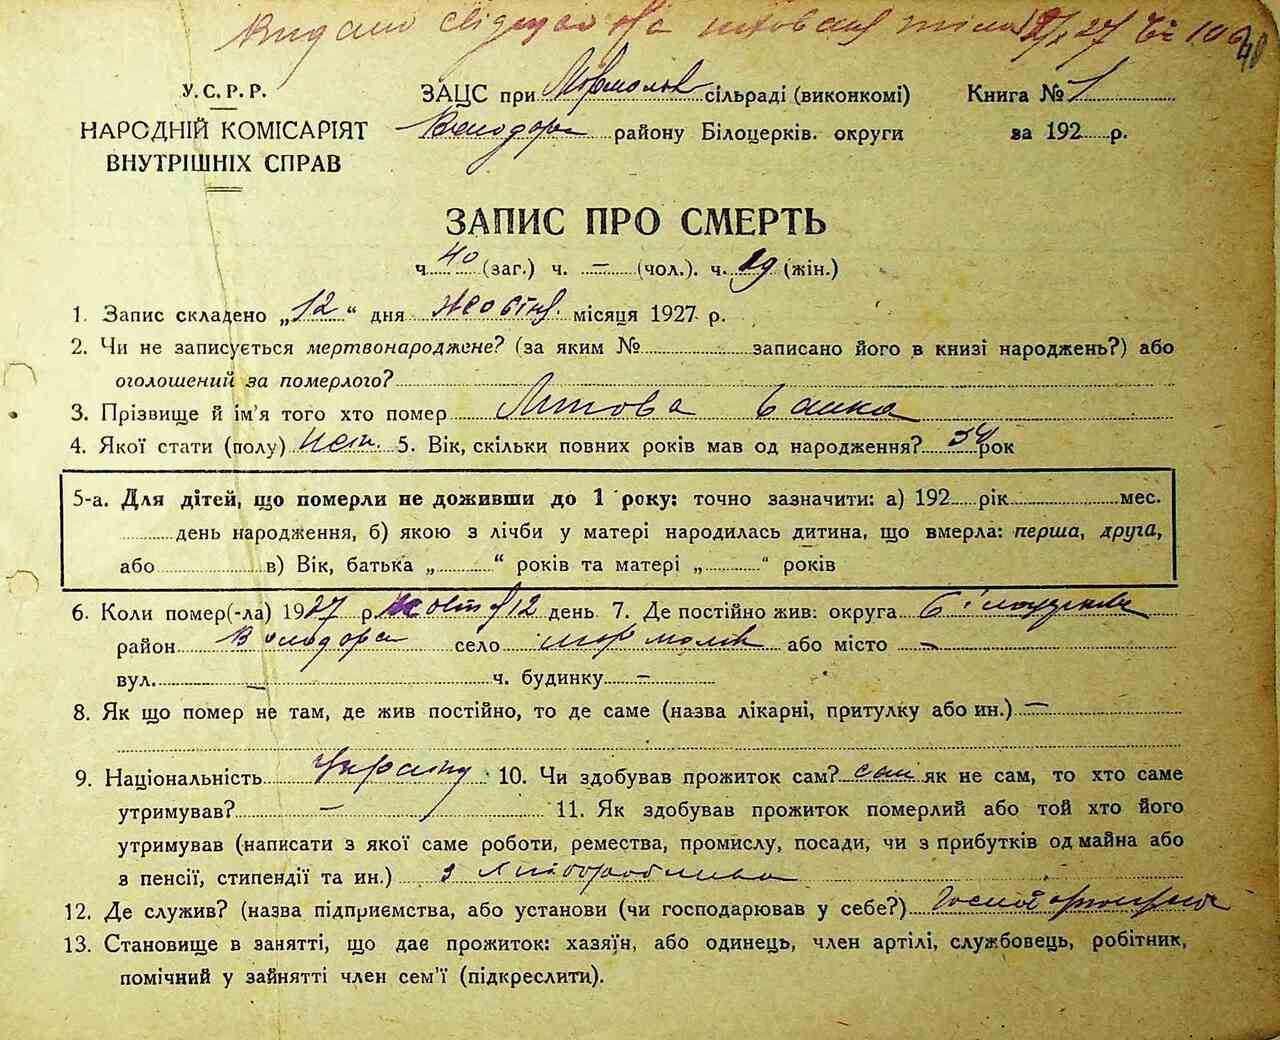 Видано на тіла 27 106
40
У.С.Р.Р.
НАРОДНІЙ КОМІСАРІЯТ
ВНУТРІШНІХ СПРАВ
ЗАЦС при Мормолів сільраді (виконкомі)
Володарс району Білоцерків. округи
Книга № 1
за 192 р.
ЗАПИС ПРО СМЕРТЬ
ч. 40 (заг.) ч. – (чол.). ч. 19 (жін.)
1. Запис складено „12“ дня жовтня місяця 1927 р.
2. Чи не записується мертвонароджене? (за яким № записано його в книзі народжень?) або
оголошений за померлого?
3. Прізвище й ім'я того хто помер
4. Якої стати (полу) жен. 5. Вік, скільки повних років мав од народження? 54 рок
5-а. Для дітей, що померли не доживши до 1 року: точно зазначити: а) 192 рік мес.
день народження, б) якою з лічби у матері народилась дитина, що вмерла: перша, друга,
або в) Вік, батька „ “ років та матері „ “ років
6. Коли помер(-ла) 1927 р. жовтня 12 день 7. Де постійно жив: округа
район Володарс село Мормолів або місто –
вул. – ч. будинку –
8. Як що помер не там, де жив постійно, то де саме (назва лікарні, притулку або ин.) –
9. Національність україн 10. Чи здобував прожиток сам? сам як не сам, то хто саме
утримував? – 11. Як здобував прожиток померлий або той хто його
утримував (написати з якої саме роботи, ремества, промислу, посади, чи з прибутків од майна або
з пенсії, стипендії та ин.) з хліборобства
12. Де служив? (назва підприємства, або установи (чи господарював у себе?)
13. Становище в занятті, що дає прожиток: хазяїн, або одинець, член артілі, службовець, робітник,
помічний у зайнятті член сем'ї (підкреслити).